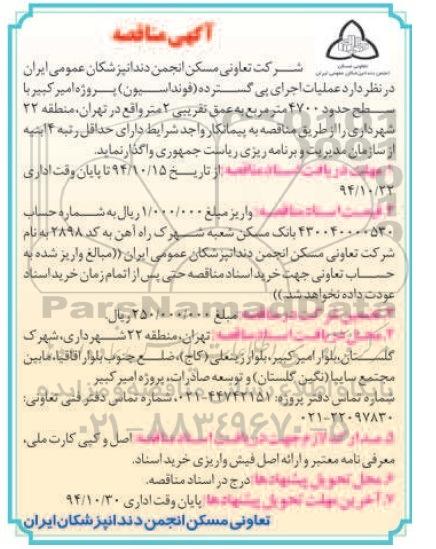 آگهی مناقصه
تعاونی مسکن
انجمن دندانپزشکان عمومی ایران
شرکت تعاونی مسکن انجمن دندانپزشکان عمومی ایران
در نظر دارد عملیات اجرای پی گسترده (فونداسیون) پروژه امیرکبیر با
سطح حدود ۴۷۰۰ مترمربع به عمق تقریبی ۲ متر واقع در تهران، منطقه ۲۲
شهرداری را از طریق مناقصه به پیمانکار واجد شرایط دارای حداقل رتبه ۴ ابنیه
از سازمان مدیریت و برنامه ریزی ریاست جمهوری واگذار نماید.
۱. مهلت دریافت اسناد مناقصه: از تاریخ ۹۴/۱۰/۱۵ تا پایان وقت اداری
۹۴/۱۰/۲۳
۲. قیمت اسناد مناقصه: واریز مبلغ ۱/۰۰۰/۰۰۰ ریال به شماره حساب
۴۳۰۰۴۰۰۰۰۵۳۰ بانک مسکن شعبه شهرک راه آهن به کد ۲۸۹۸ به نام
شرکت تعاونی مسکن انجمن دندانپزشکان عمومی ایران ((مبالغ واریز شده به
حساب تعاونی جهت خرید اسناد مناقصه حتی پس از اتمام زمان خرید اسناد
عودت داده نخواهد شد.))
مبلغ ۲۵۰/۰۰۰/۰۰۰ ریال
محل دریافت اسناد مناقصه: تهران، منطقه ۲۲ شهرداری، شهرک
گلستان، بلوار امیرکبیر، بلوار زینعلی (کاج)، ضلع جنوب بلوار اقاقیا، مابین
مجتمع سایپا (نگین گلستان) و توسعه صادرات، پروژه امیرکبیر
شماره تماس دفتر پروژه: ۴۴۷۴۲۱۵۱-۰۲۱، شماره تماس دفتر فنی تعاونی:
۰۲۱-۲۲۰۹۷۸۳۰
۵. مدارک لازم جهت دریافت اسناد مناقصه: اصل و کپی کارت ملی،
معرفی نامه معتبر و ارائه اصل فیش واریزی خرید اسناد.
۶. محل تحویل پیشنهادها: درج در اسناد مناقصه.
۷. آخرین مهلت تحویل پیشنهادها: پایان وقت اداری ۹۴/۱۰/۳۰
تعاونی مسکن انجمن دندانپزشکان ایران
ParsNamadData
۰۲۱-۸۸۳۴۹۶۷۰-۵